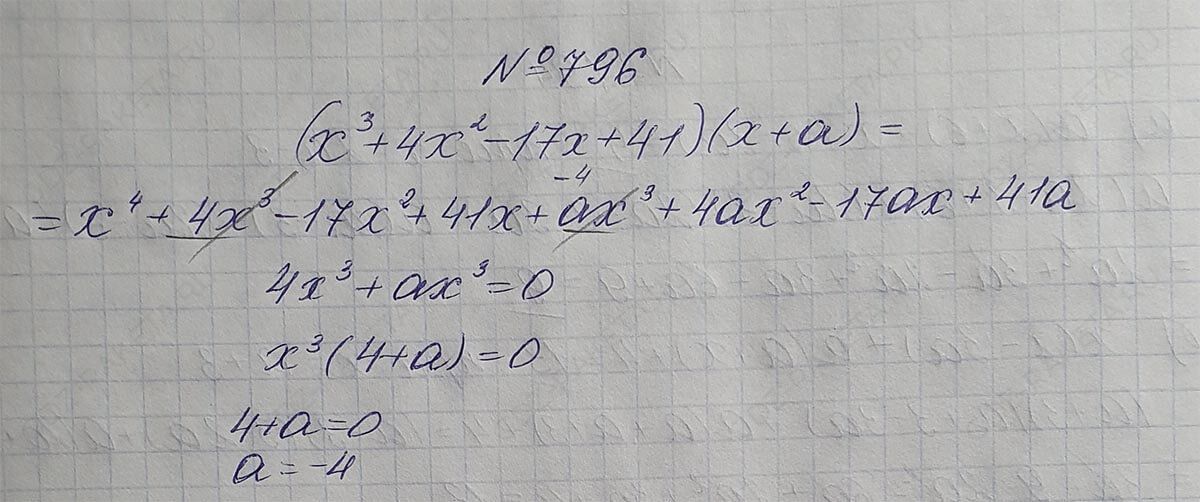 №796
(x³+4x²-17x+41)(x+a)=
-4
=x⁴+4x³-17x²+41x+ax³+4ax²-17ax+41a
4x³+ax³=0
x³(4+a)=0
4+a=0
a=-4